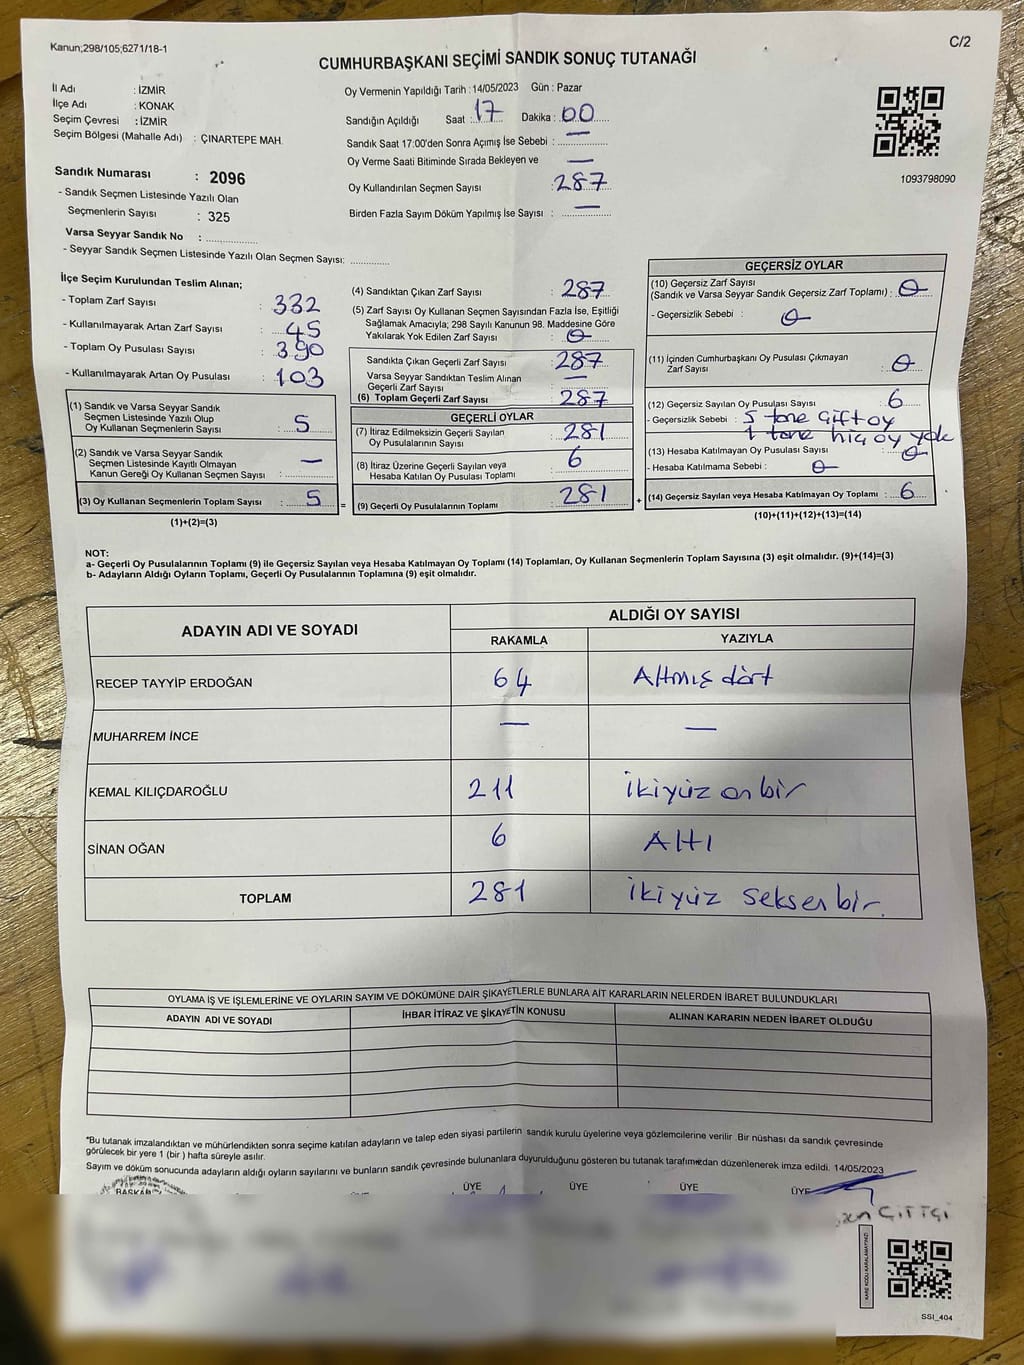 Kanun;298/105;6271/18-1
C/2
CUMHURBAŞKANI SEÇİMİ SANDIK SONUÇ TUTANAĞI
İl Adı : İZMİR
İlçe Adı : KONAK
Seçim Çevresi : İZMİR
Seçim Bölgesi (Mahalle Adı) : ÇINARTEPE MAH.
Oy Vermenin Yapıldığı Tarih : 14/05/2023 Gün : Pazar
Sandığın Açıldığı Saat : 17 Dakika : 00
Sandık Saat 17:00'den Sonra Açımış İse Sebebi : —
Oy Verme Saati Bitiminde Sırada Bekleyen ve —
Oy Kullandırılan Seçmen Sayısı : 287
Birden Fazla Sayım Döküm Yapılmış İse Sayısı : —
1093798090
Sandık Numarası : 2096
- Sandık Seçmen Listesinde Yazılı Olan
Seçmenlerin Sayısı : 325
Varsa Seyyar Sandık No : ..............
- Seyyar Sandık Seçmen Listesinde Yazılı Olan Seçmen Sayısı: ............
İlçe Seçim Kurulundan Teslim Alınan;
- Toplam Zarf Sayısı : 332
- Kullanılmayarak Artan Zarf Sayısı : 45
- Toplam Oy Pusulası Sayısı : 390
- Kullanılmayarak Artan Oy Pusulası : 103
(1) Sandık ve Varsa Seyyar Sandık
Seçmen Listesinde Yazılı Olup
Oy Kullanan Seçmenlerin Sayısı : 5
(2) Sandık ve Varsa Seyyar Sandık
Seçmen Listesinde Kayıtlı Olmayan
Kanun Gereği Oy Kullanan Seçmen Sayısı : —
(3) Oy Kullanan Seçmenlerin Toplam Sayısı : 5 =
(1)+(2)=(3)
(4) Sandıktan Çıkan Zarf Sayısı : 287
(5) Zarf Sayısı Oy Kullanan Seçmen Sayısından Fazla İse, Eşitliği
Sağlamak Amacıyla; 298 Sayılı Kanunun 98. Maddesine Göre
Yakılarak Yok Edilen Zarf Sayısı : 0
Sandıkta Çıkan Geçerli Zarf Sayısı : 287
Varsa Seyyar Sandıktan Teslim Alınan
Geçerli Zarf Sayısı : —
(6) Toplam Geçerli Zarf Sayısı : 287
GEÇERLİ OYLAR
(7) İtiraz Edilmeksizin Geçerli Sayılan
Oy Pusulalarının Sayısı : 281
(8) İtiraz Üzerine Geçerli Sayılan veya
Hesaba Katılan Oy Pusulası Toplamı : 6
(9) Geçerli Oy Pusulalarının Toplamı : 281 +
GEÇERSİZ OYLAR
(10) Geçersiz Zarf Sayısı
(Sandık ve Varsa Seyyar Sandık Geçersiz Zarf Toplamı) : 0
- Geçersizlik Sebebi : 0
(11) İçinden Cumhurbaşkanı Oy Pusulası Çıkmayan
Zarf Sayısı : 0
(12) Geçersiz Sayılan Oy Pusulası Sayısı : 6
- Geçersizlik Sebebi : 5 tane çift oy
1 tane hiç oy yok
(13) Hesaba Katılmayan Oy Pusulası Sayısı : 0
- Hesaba Katılmama Sebebi : 0
(14) Geçersiz Sayılan veya Hesaba Katılmayan Oy Toplamı : 6
(10)+(11)+(12)+(13)=(14)
NOT:
a- Geçerli Oy Pusulalarının Toplamı (9) ile Geçersiz Sayılan veya Hesaba Katılmayan Oy Toplamı (14) Toplamları, Oy Kullanan Seçmenlerin Toplam Sayısına (3) eşit olmalıdır. (9)+(14)=(3)
b- Adayların Aldığı Oyların Toplamı, Geçerli Oy Pusulalarının Toplamına (9) eşit olmalıdır.
ADAYIN ADI VE SOYADI
ALDIĞI OY SAYISI
RAKAMLA YAZIYLA
RECEP TAYYİP ERDOĞAN 64 Altmış dört
MUHARREM İNCE — —
KEMAL KILIÇDAROĞLU 211 İkiyüz on bir
SİNAN OĞAN 6 Altı
TOPLAM 281 İkiyüz seksen bir.
OYLAMA İŞ VE İŞLEMLERİNE VE OYLARIN SAYIM VE DÖKÜMÜNE DAİR ŞİKAYETLERLE BUNLARA AİT KARARLARIN NELERDEN İBARET BULUNDUKLARI
ADAYIN ADI VE SOYADI İHBAR İTİRAZ VE ŞİKAYETİN KONUSU ALINAN KARARIN NEDEN İBARET OLDUĞU
*Bu tutanak imzalandıktan ve mühürlendikten sonra seçime katılan adayların ve talep eden siyasi partilerin sandık kurulu üyelerine veya gözlemcilerine verilir. Bir nüshası da sandık çevresinde
görülecek bir yere 1 (bir ) hafta süreyle asılır.
Sayım ve döküm sonucunda adayların aldığı oyların sayılarını ve bunların sandık çevresinde bulunanlara duyurulduğunu gösteren bu tutanak tarafımızdan düzenlenerek imza edildi. 14/05/2023
BAŞKAN ÜYE ÜYE ÜYE ÜYE
ÇİFTÇİ
KARE KODU KARALAMAYINIZ!
SSI_404